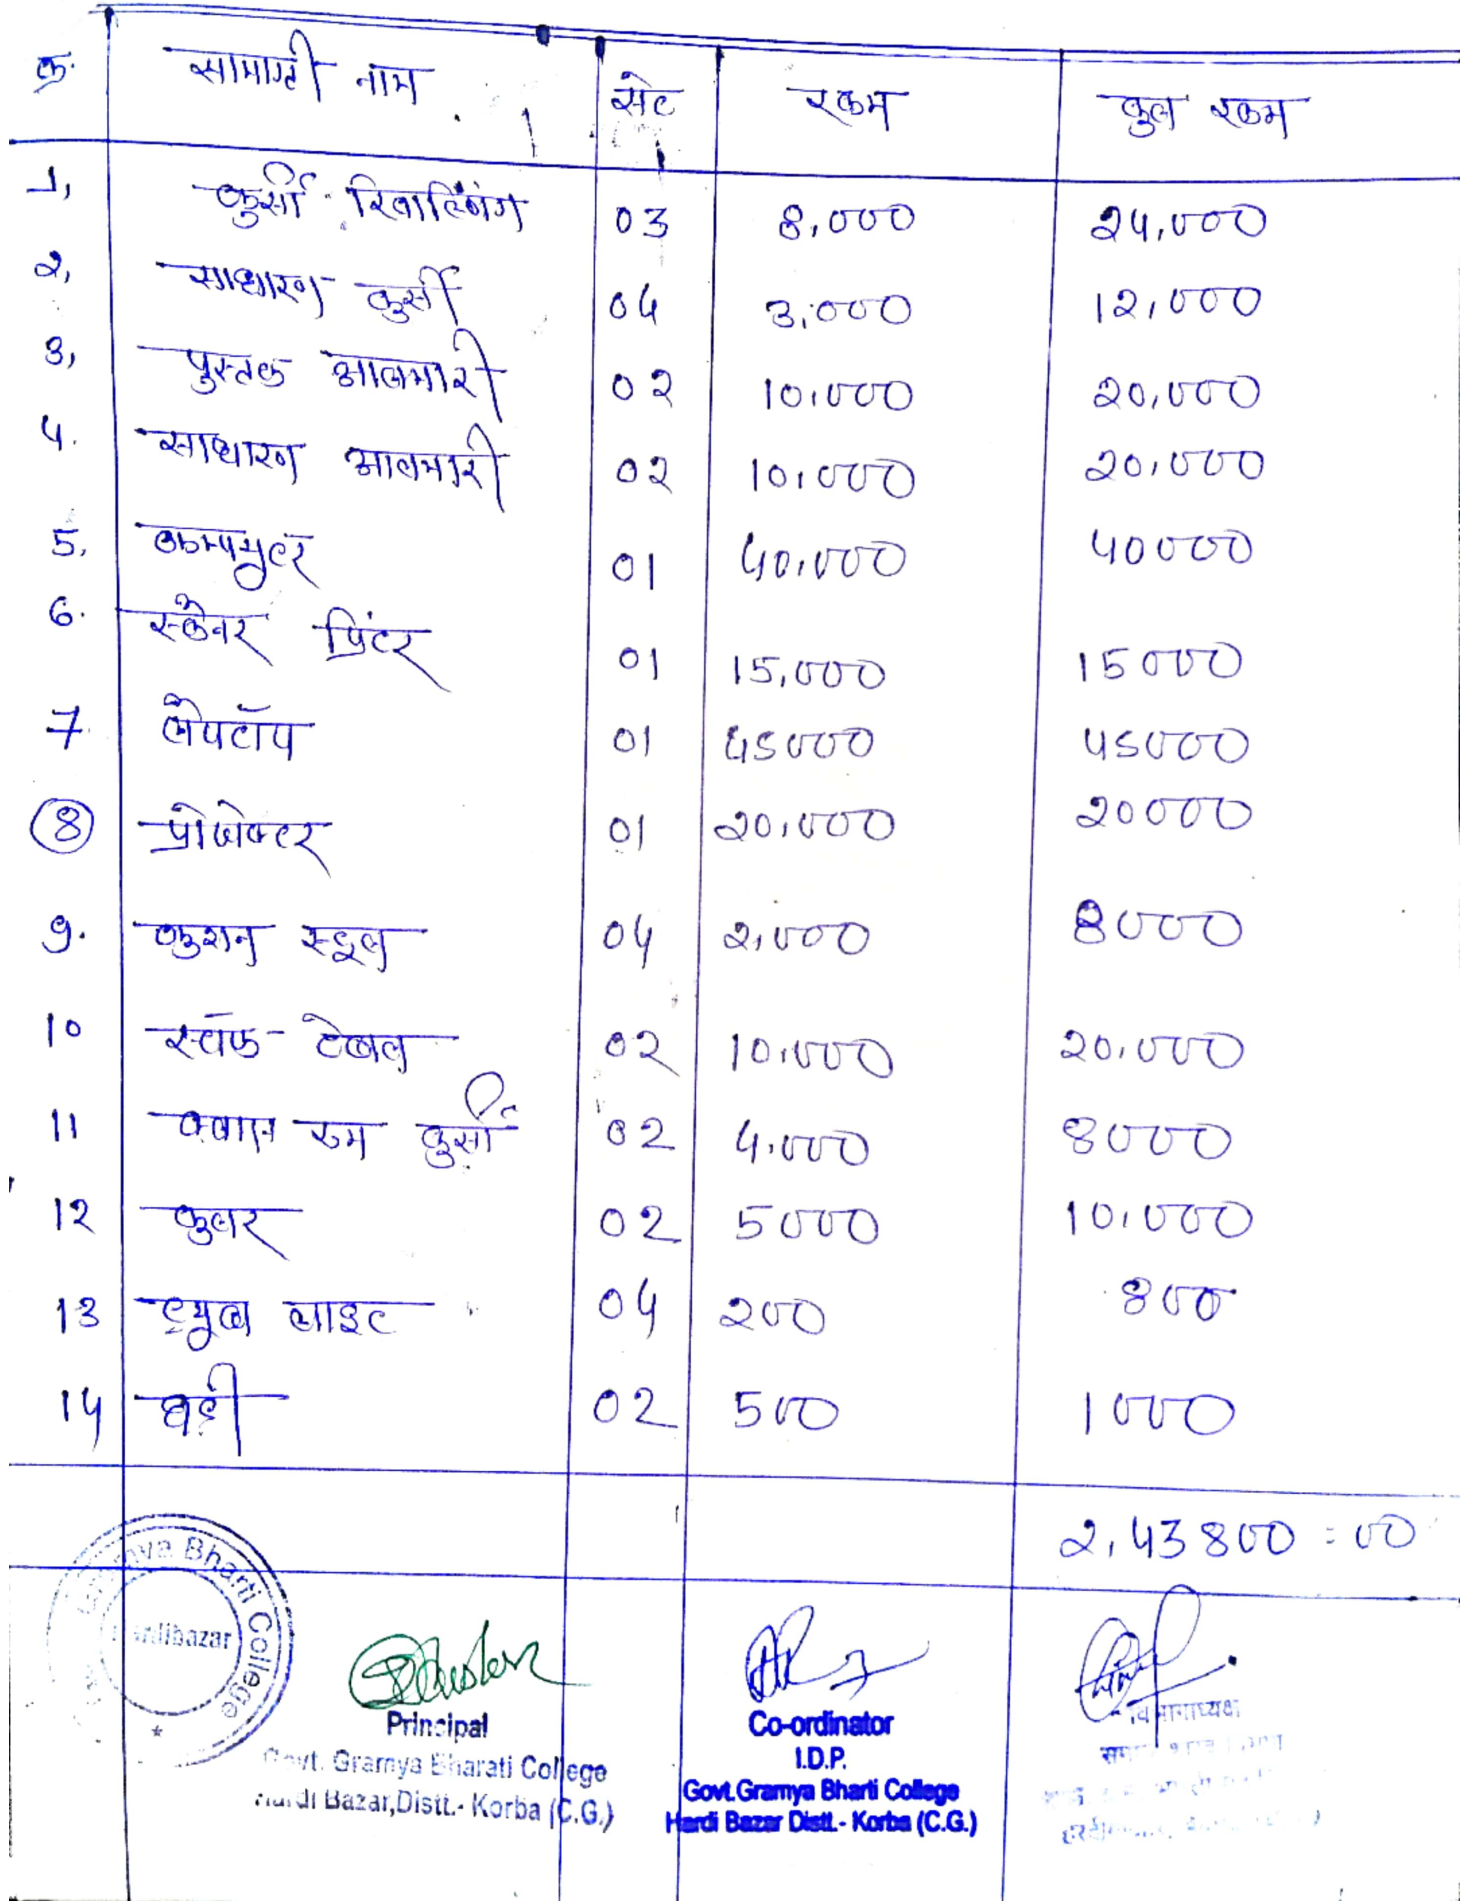 क्र. सामाग्री नाम सेट रकम कुल रकम
1, कुर्सी रिवाल्विंग 03 8,000 24,000
2, साधारण कुर्सी 04 3,000 12,000
3, पुस्तक आलमारी 02 10,000 20,000
4. साधारण आलमारी 02 10,000 20,000
5. कम्प्युटर 01 40,000 40000
6. स्केनर प्रिंटर 01 15,000 15000
7 लैपटॉप 01 45000 45000
8 प्रोजेक्टर 01 20,000 20000
9. कुशन स्टूल 04 2,000 8000
10 स्टॉफ टेबल 02 10,000 20,000
11 क्लास रूम कुर्सी 02 4,000 8000
12 कुलर 02 5000 10,000
13 ट्युब लाइट 04 200 800
14 घड़ी 02 500 1000
2,43800=00
Bharti College
Hardibazar
Principal
Govt. Gramya Bharati College
Hardi Bazar,Distt.- Korba (C.G.)
Co-ordinator
I.D.P.
Govt.Gramya Bharti College
Hardi Bazar Distt.- Korba (C.G.)
विभागाध्यक्ष